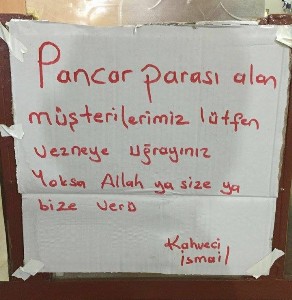 Pancar parası alan
müşterilerimiz lütfen
vezneye uğrayınız
Yoksa Allah ya size ya
bize verD
Kahveci
ismail